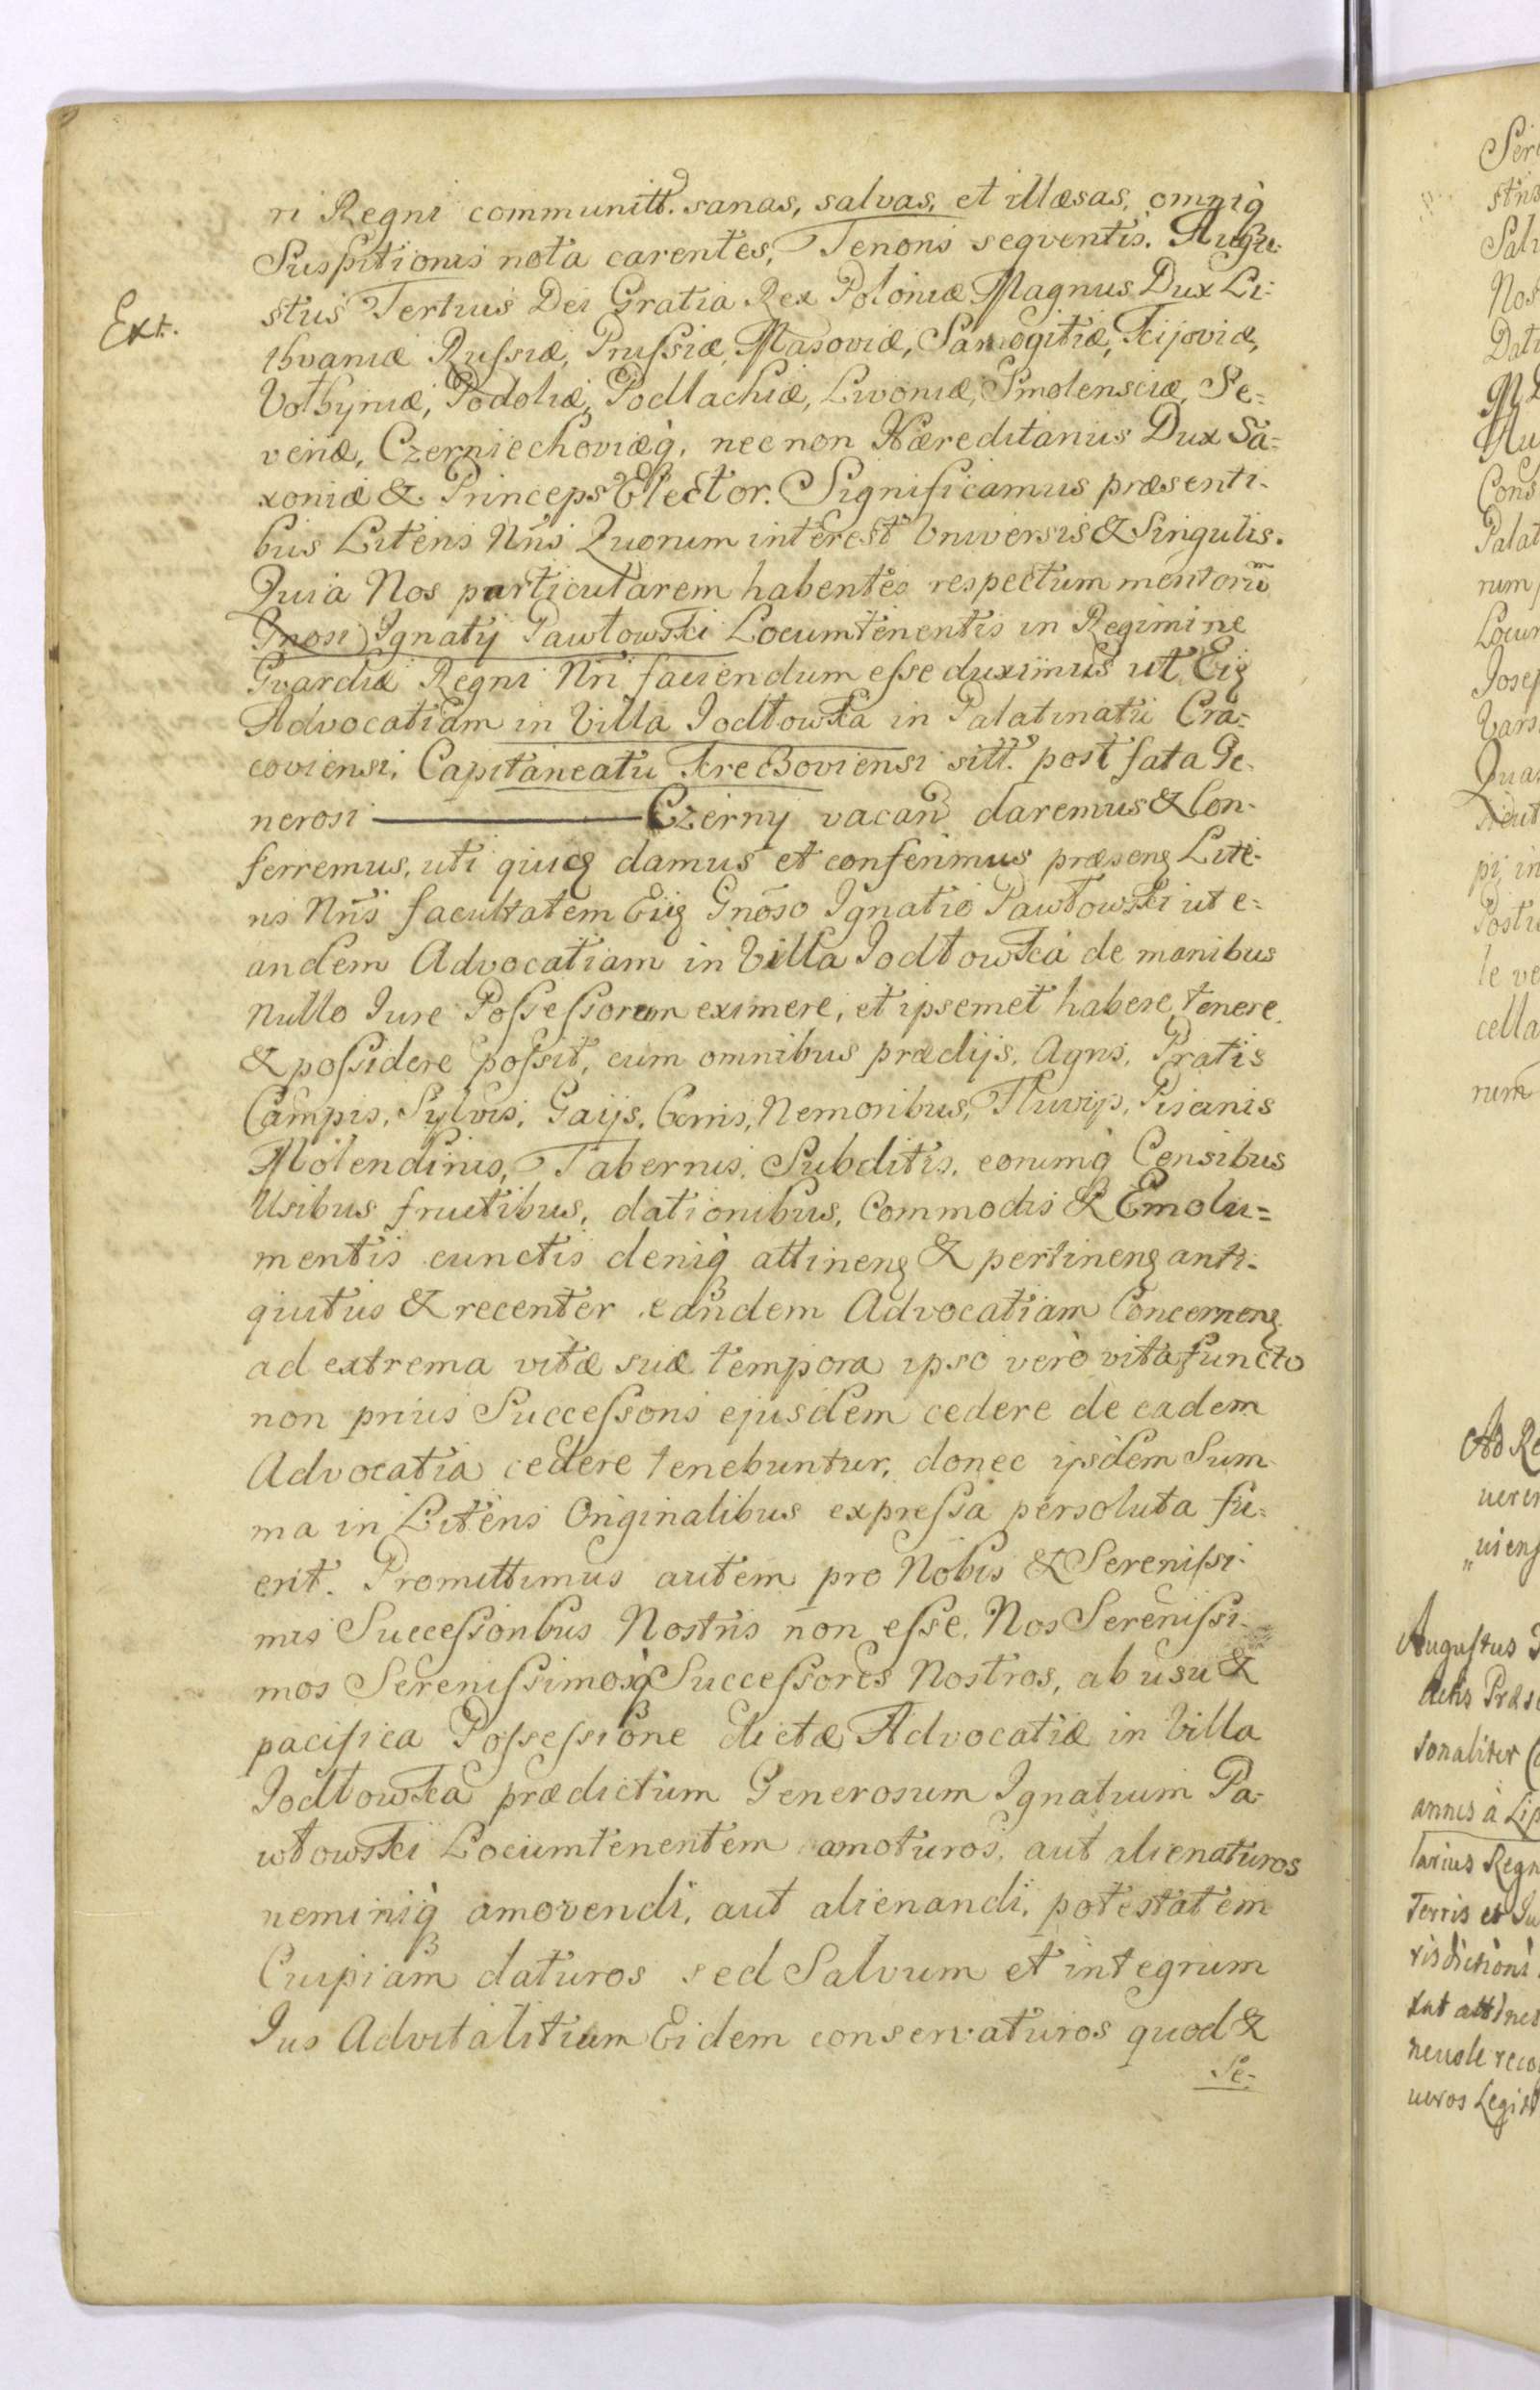 ri Regni communitt. sanas, salvas, et illæsas, omniq̀
Suspitionis nota carentes, Tenoris seqventis. Augu-
Ext.
stus Tertius Dei Gratia Rex Poloniæ Magnus Dux Li-
thvaniæ Russiæ, Prussiæ, Masoviæ, Samogitiæ, Kijoviæ,
Volhyniæ, Podoliæ, Podlachiæ, Livoniæ, Smolensciæ, Se-
veriæ, Czerniechoviæq̀, nec non Hæreditarius Dux Sa-
xoniæ & Princeps Elector. Significamus præsenti-
bus Literis Nr̃is Quorum interest Universis & Singulis.
Quia Nos particularem habentes respectum meritorũ
Gnosi Ignatij Pawłowski Locumtenentis in Regimine
Gvardiæ Regni Nr̃i faciendum esse duximus ut Eiꝫ
Advocatiam in Villa Jodłowka in Palatinatu Cra-
coviensi, Capitaneatu Kreczoviensi sitt. post fata Ge-
nerosi ——— Czerny vacan̄ daremus & Con-
ferremus, uti quidꝫ damus et conferimus præsenꝫ Lite-
ris Nr̃is facultatem Eiꝫ Gnõso Ignatio Pawłowski ut e-
andem Advocatiam in Villa Jodłowka de manibus
nullo Jure Possessorum eximere, et ipsemet habere tenere
& possidere possit, cum omnibus prædijs, Agris, Pratis
Campis, Sylvis, Gaijs, Borris, Nemoribus, Fluvijs, Piscinis
Molendinis, Tabernis, Subditis, eorumq̀ Censibus
Usibus fructibus, dationibus, Commodis & Emolu-
mentis cunctis deniq̀ attinenꝫ & pertinenꝫ anti-
quitus & recenter eandem Advocatiam Concernenꝫ
ad extrema vitæ suæ tempora ipso verò vita functo
non prius Successoris ejusdem cedere de eadem
Advocatia cedere tenebuntur, donec ijsdem Sum-
ma in Literis Originalibus expressa persoluta fu-
erit. Promittimus autem pro Nobis & Serenissi-
mis Successoribus Nostris non esse, Nos Serenissi-
mos Serenissimosq̀ Successores Nostros, ab usu &
pacifica Possessione dictæ Advocatiæ in Villa
Jodłowka prædictum Generosum Ignatium Pa-
włowski Locumtenentem amoturos, aut alienaturos
neminiq̀ amovendi, aut alienandi, potestatem
Cuipiam daturos sed Salvum et integrum
Jus Advitalitium Eidem conservaturos quod &
Se-